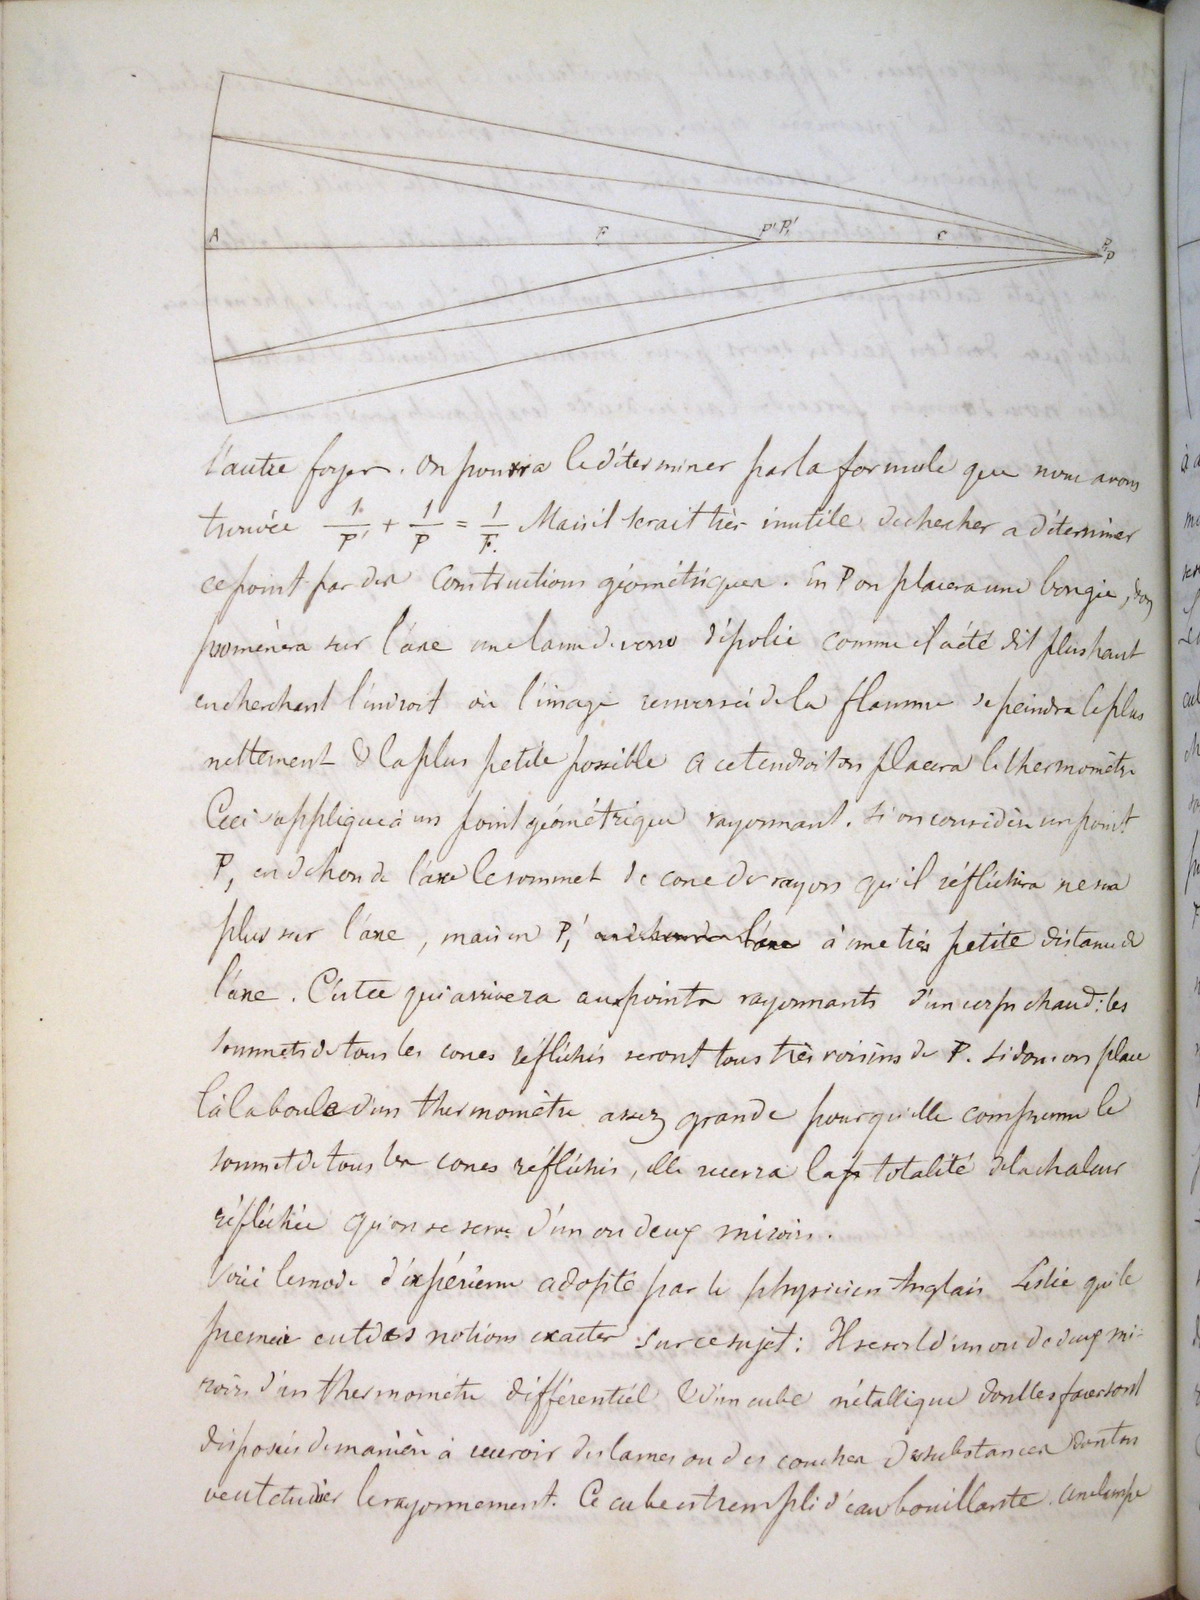 A F P' P,' C P, P
l'autre foyer. On pourra le déterminer par la formule que nous avons
trouvée 1/P' + 1/P = 1/F. Mais il serait très inutile de chercher a déterminer
ce point par des Constructions géométriques. En P on placera une bougie, on
promènera sur l'axe une lame de verre dépolie comme il a été dit plus haut
en cherchant l'endroit où l'image renversée de la flamme se peindra le plus
nettement & la plus petite possible a cet endroit on placera le thermomètre
Ceci s'applique à un point géométrique rayonnant. Si on considère un point
P, en dehors de l'axe le sommet de cone des rayons qu'il réfléchira ne sera
plus sur l'axe, mais en P,' en dehors de l'axe à une très petite distance de
l'axe. C'est ce qui arrivera aux points rayonnants d'un corps chaud: les
sommets de tous les cones réfléchis seront tous très voisins de P. Si donc on place
là la boule d'un thermomètre assez grande pour qu'elle comprenne le
sommet de tous les cones réfléchis, elle recevra la totalité de la chaleur
réfléchie qu'on se serve d'un ou deux miroirs.
Voici le mode d'expérience adopté par le physicien Anglais Leslie qui le
premier eut des notions exactes sur ce sujet: Il se sert d'un ou de deux mi-
roirs d'un thermomètre différentiel & d'un cube métallique dont les faces sont
disposées de manière à recevoir des lames ou des couches de substances dont on
veut étudier le rayonnement. Ce cube est rempli d'eau bouillante. une lampe